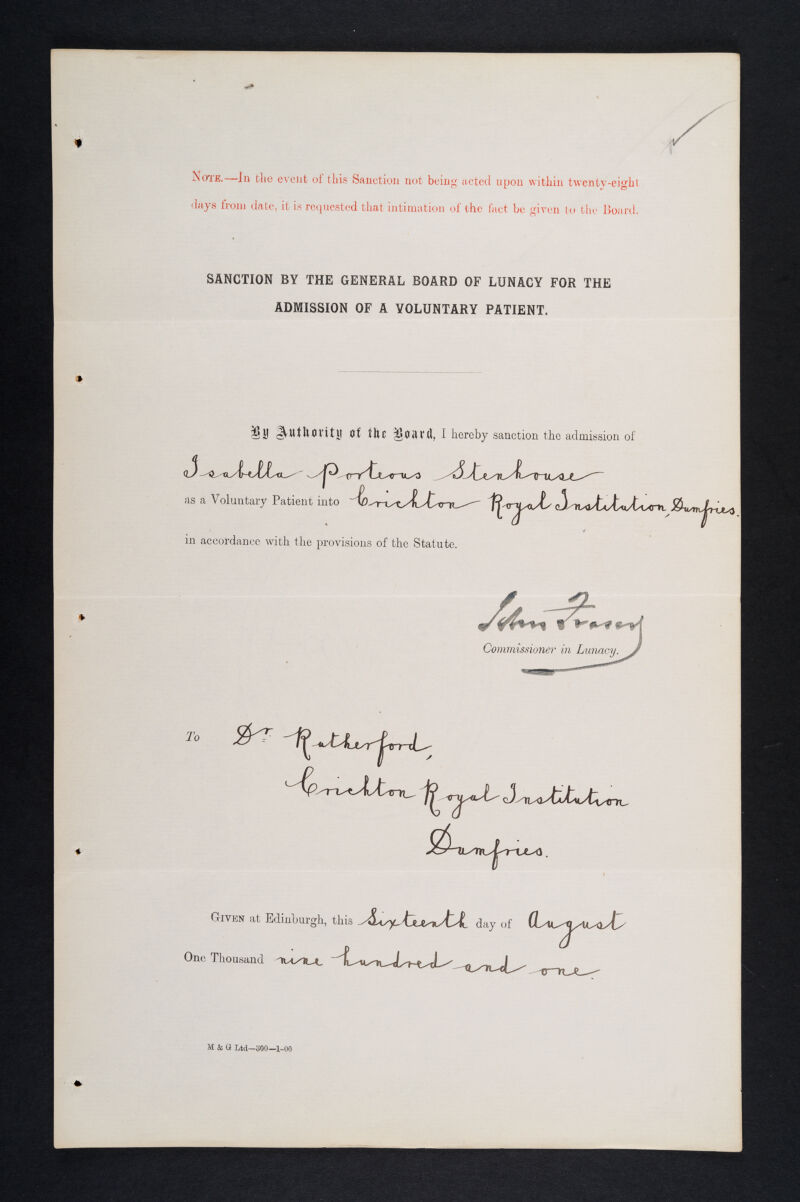 NOTE.—In the event of this Sanction not being acted upon within twenty-eight
days from date, it is requested that intimation of the fact be given to the Board.
SANCTION BY THE GENERAL BOARD OF LUNACY FOR THE
ADMISSION OF A VOLUNTARY PATIENT.
By Authority of the Board, I hereby sanction the admission of
Isabella Porteous Stenhouse
as a Voluntary Patient into Crichton Royal Institution, Dumfries.
in accordance with the provisions of the Statute.
John Fraser
Commissioner in Lunacy.
To Dr Rutherford,
Crichton Royal Institution
Dumfries.
GIVEN at Edinburgh, this Sixteenth day of August
One Thousand nine hundred and one.
M & G Ltd—300—1-00